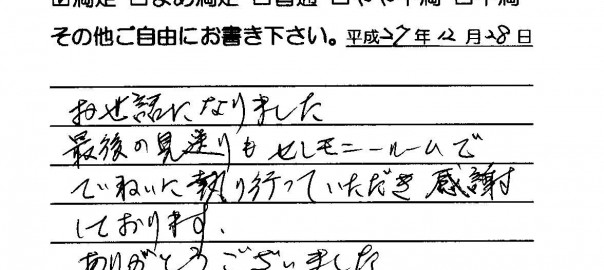 ☑満足 □まあ満足 □普通 □やや不満 □不満
その他ご自由にお書き下さい。平成27年12月28日
お世話になりました
最後の見送りもセレモニールームで
でいねいに執り行っていただき感謝
しております.
ありがとうございました